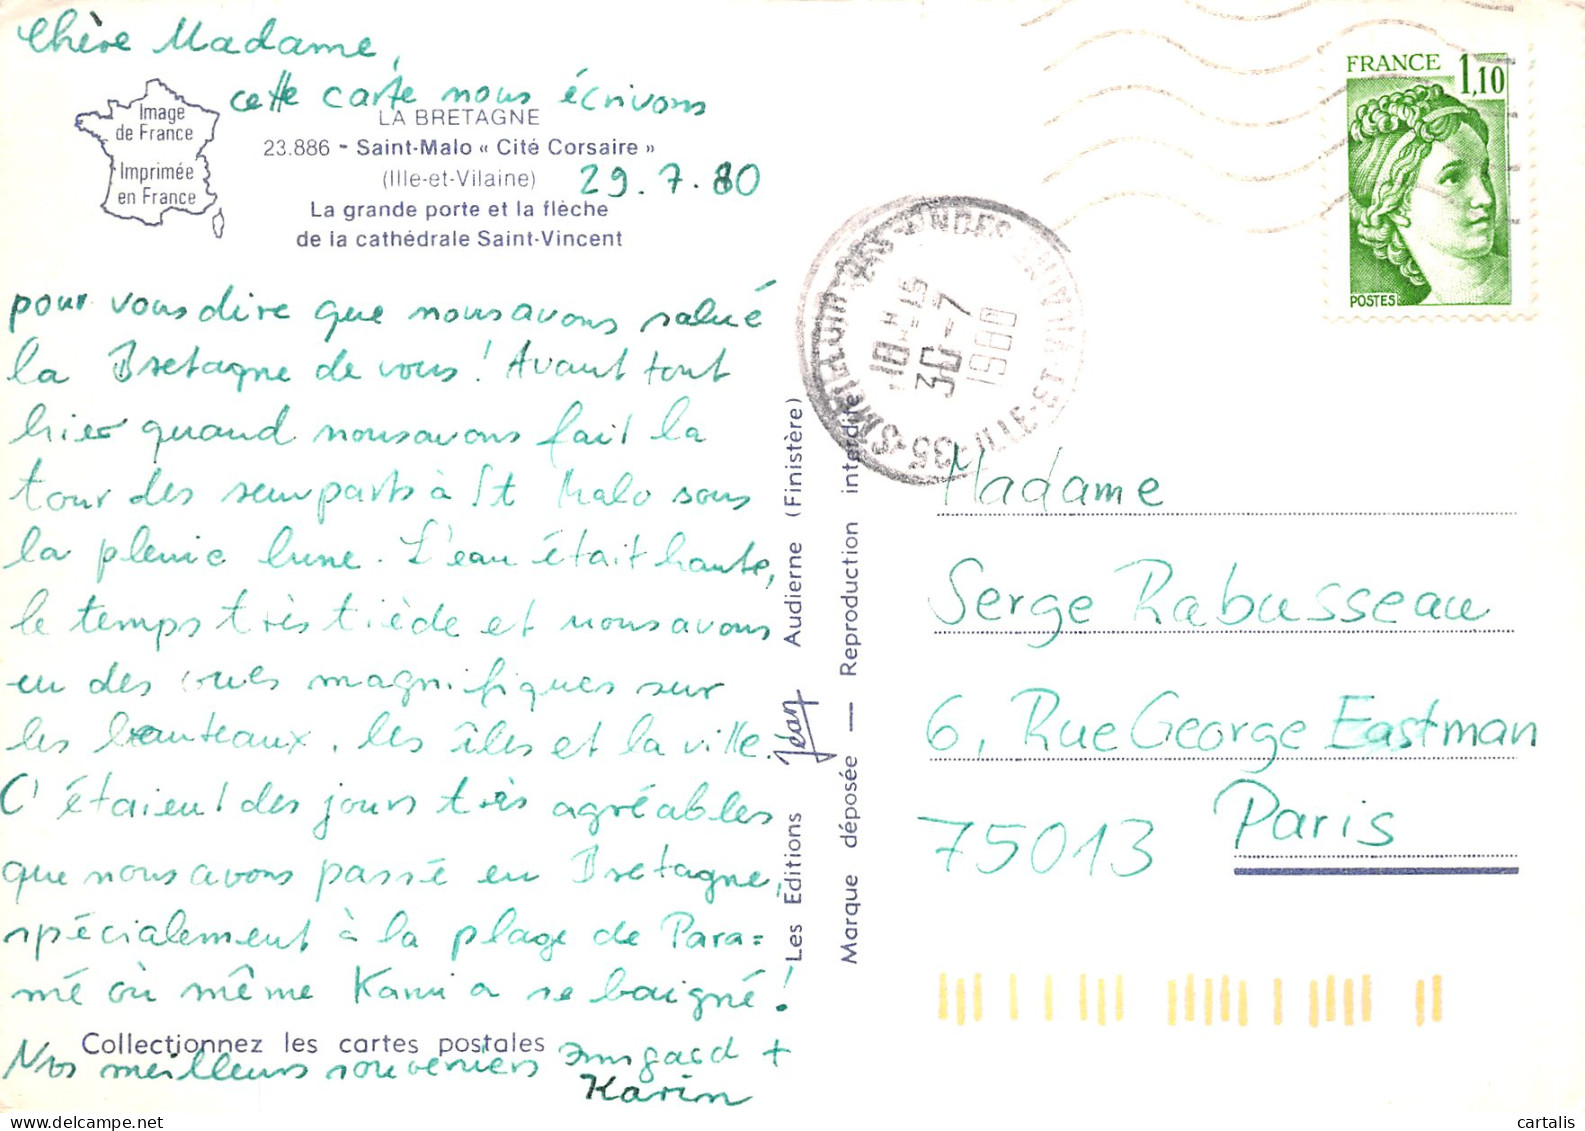 Chère Madame,
cette carte nous écrivons
Image
de France
Imprimée
en France
LA BRETAGNE
23.886 - Saint-Malo « Cité Corsaire »
(Ille-et-Vilaine)
29.7.80
La grande porte et la flèche
de la cathédrale Saint-Vincent
pour vous dire que nous avons salué
la Bretagne de vous! Avant tout
hier quand nous avons fait la
tour des remparts à St Malo sous
la pleine lune. L'eau était haute,
le temps très tiède et nous avons
eu des vues magnifiques sur
les bateaux, les îles et la ville.
C'étaient des jours très agréables
que nous avons passé en Bretagne,
spécialement à la plage de Para=
mé où même Karin a se baigné!
Collectionnez les cartes postales
Nos meilleurs souveniers Irmgard +
Karin
Les Editions Jéan Audierne (Finistère)
Marque déposée — Reproduction interdite
18 H 15
30-7
1980
35
FRANCE 1,10
POSTES
Madame
Serge Rabusseau
6, Rue George Eastman
75013 Paris
delcampe.net
cartalis